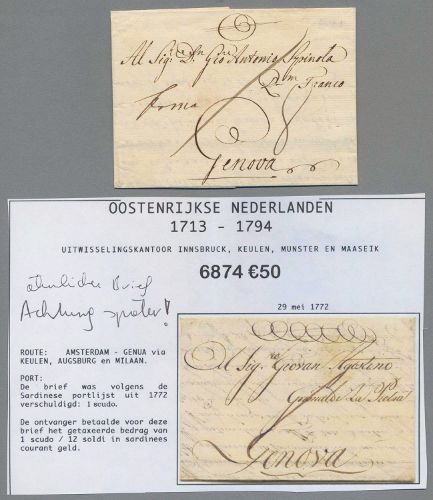 Al Sig.re Dn. Gio Antonio Spinola
Franco
Genova
OOSTENRIJKSE NEDERLANDEN
1713 - 1794
UITWISSELINGSKANTOOR INNSBRUCK, KEULEN, MUNSTER EN MAASEIK
6874 €50
ähnlicher Brief
Achtung später!
29 mei 1772
ROUTE: AMSTERDAM - GENUA via
KEULEN, AUGSBURG en MILAAN.
PORT:
De brief was volgens de
Sardinese portlijst uit 1772
verschuldigd: 1 scudo.
De ontvanger betaalde voor deze
brief het getaxeerde bedrag van
1 scudo / 12 soldi in sardinees
courant geld.
Al Sig.re Giovan Agostino
Grimaldi
Genova